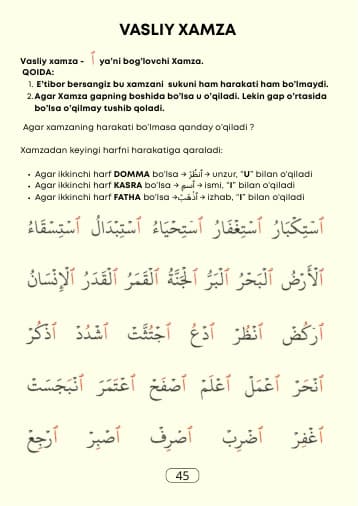 VASLIY XAMZA
Vasliy xamza - ٱ ya'ni bog'lovchi Xamza.
QOIDA:
1. E'tibor bersangiz bu xamzani sukuni ham harakati ham bo'lmaydi.
2. Agar Xamza gapning boshida bo'lsa u o'qiladi. Lekin gap o'rtasida
bo'lsa o'qilmay tushib qoladi.
Agar xamzaning harakati bo'lmasa qanday o'qiladi ?
Xamzadan keyingi harfni harakatiga qaraladi:
• Agar ikkinchi harf DOMMA bo'lsa → ٱنظُرْ → unzur, "U" bilan o'qiladi
• Agar ikkinchi harf KASRA bo'lsa → ٱسمِ → ismi, "I" bilan o'qiladi
• Agar ikkinchi harf FATHA bo'lsa →ٱذْهَبْ→ izhab, "I" bilan o'qiladi
ٱسْتِكْبَارُ ٱسْتِغْفَارُ ٱسْتِحْيَاءُ ٱسْتِبْدَالُ ٱسْتِسْقَاءُ
ٱلْأَرْضُ ٱلْبَحْرُ ٱلْبَرُّ ٱلْجَنَّةُ ٱلْقَمَرُ ٱلْقَدَرُ ٱلْإِنْسَانُ
ٱرْكُضْ ٱنْظُرْ ٱدْعُ ٱجْتُثَّتْ ٱشْدُدْ ٱذْكُرْ
ٱنْحَرْ ٱعْمَلْ ٱعْلَمْ ٱصْفَحْ ٱعْتَمَرَ ٱنْبَجَسَتْ
ٱغْفِرْ ٱضْرِبْ ٱصْرِفْ ٱصْبِرْ ٱرْجِعْ
45